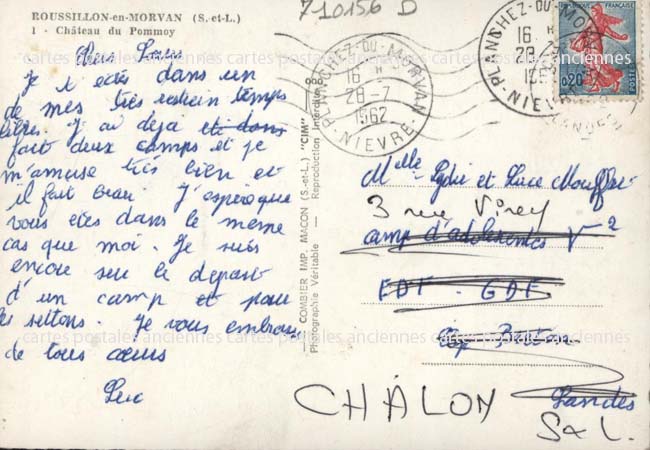 ROUSSILLON-en-MORVAN (S.-et-L.)
1 - Château du Pommoy
710156 D
Je écris dans un
de mes très restrein temps
libres. J'ai deja et dans
fait deux camps et je
m'amuse très bien et
il fait beau. J'espère que
vous etes dans le meme
cas que moi. Je suis
encore sur le depart
d'un camp et pour
les settons. Je vous embrasse
de tous cœurs
Luc
COMBIER IMP. MACON (S.-et-L.) "CIM"
Photographie Véritable - Reproduction Interdite
PLANCHEZ-DU-MORVAN
16 H
28-7
1962
NIEVRE
PLANCHEZ-DU-MORVAN
16 H
28-7
NIEVRE
FRANÇAISE
0,20
POSTES
Melle et Luce
3 rue Virey
camp d'adolescentes V2
EDF - GDF
Cap
Landes
CHÂLON
S & L.
cartes postales anciennes cartes postales anciennes cartes postales anciennes
cartes postales anciennes cartes postales anciennes cartes postales anciennes